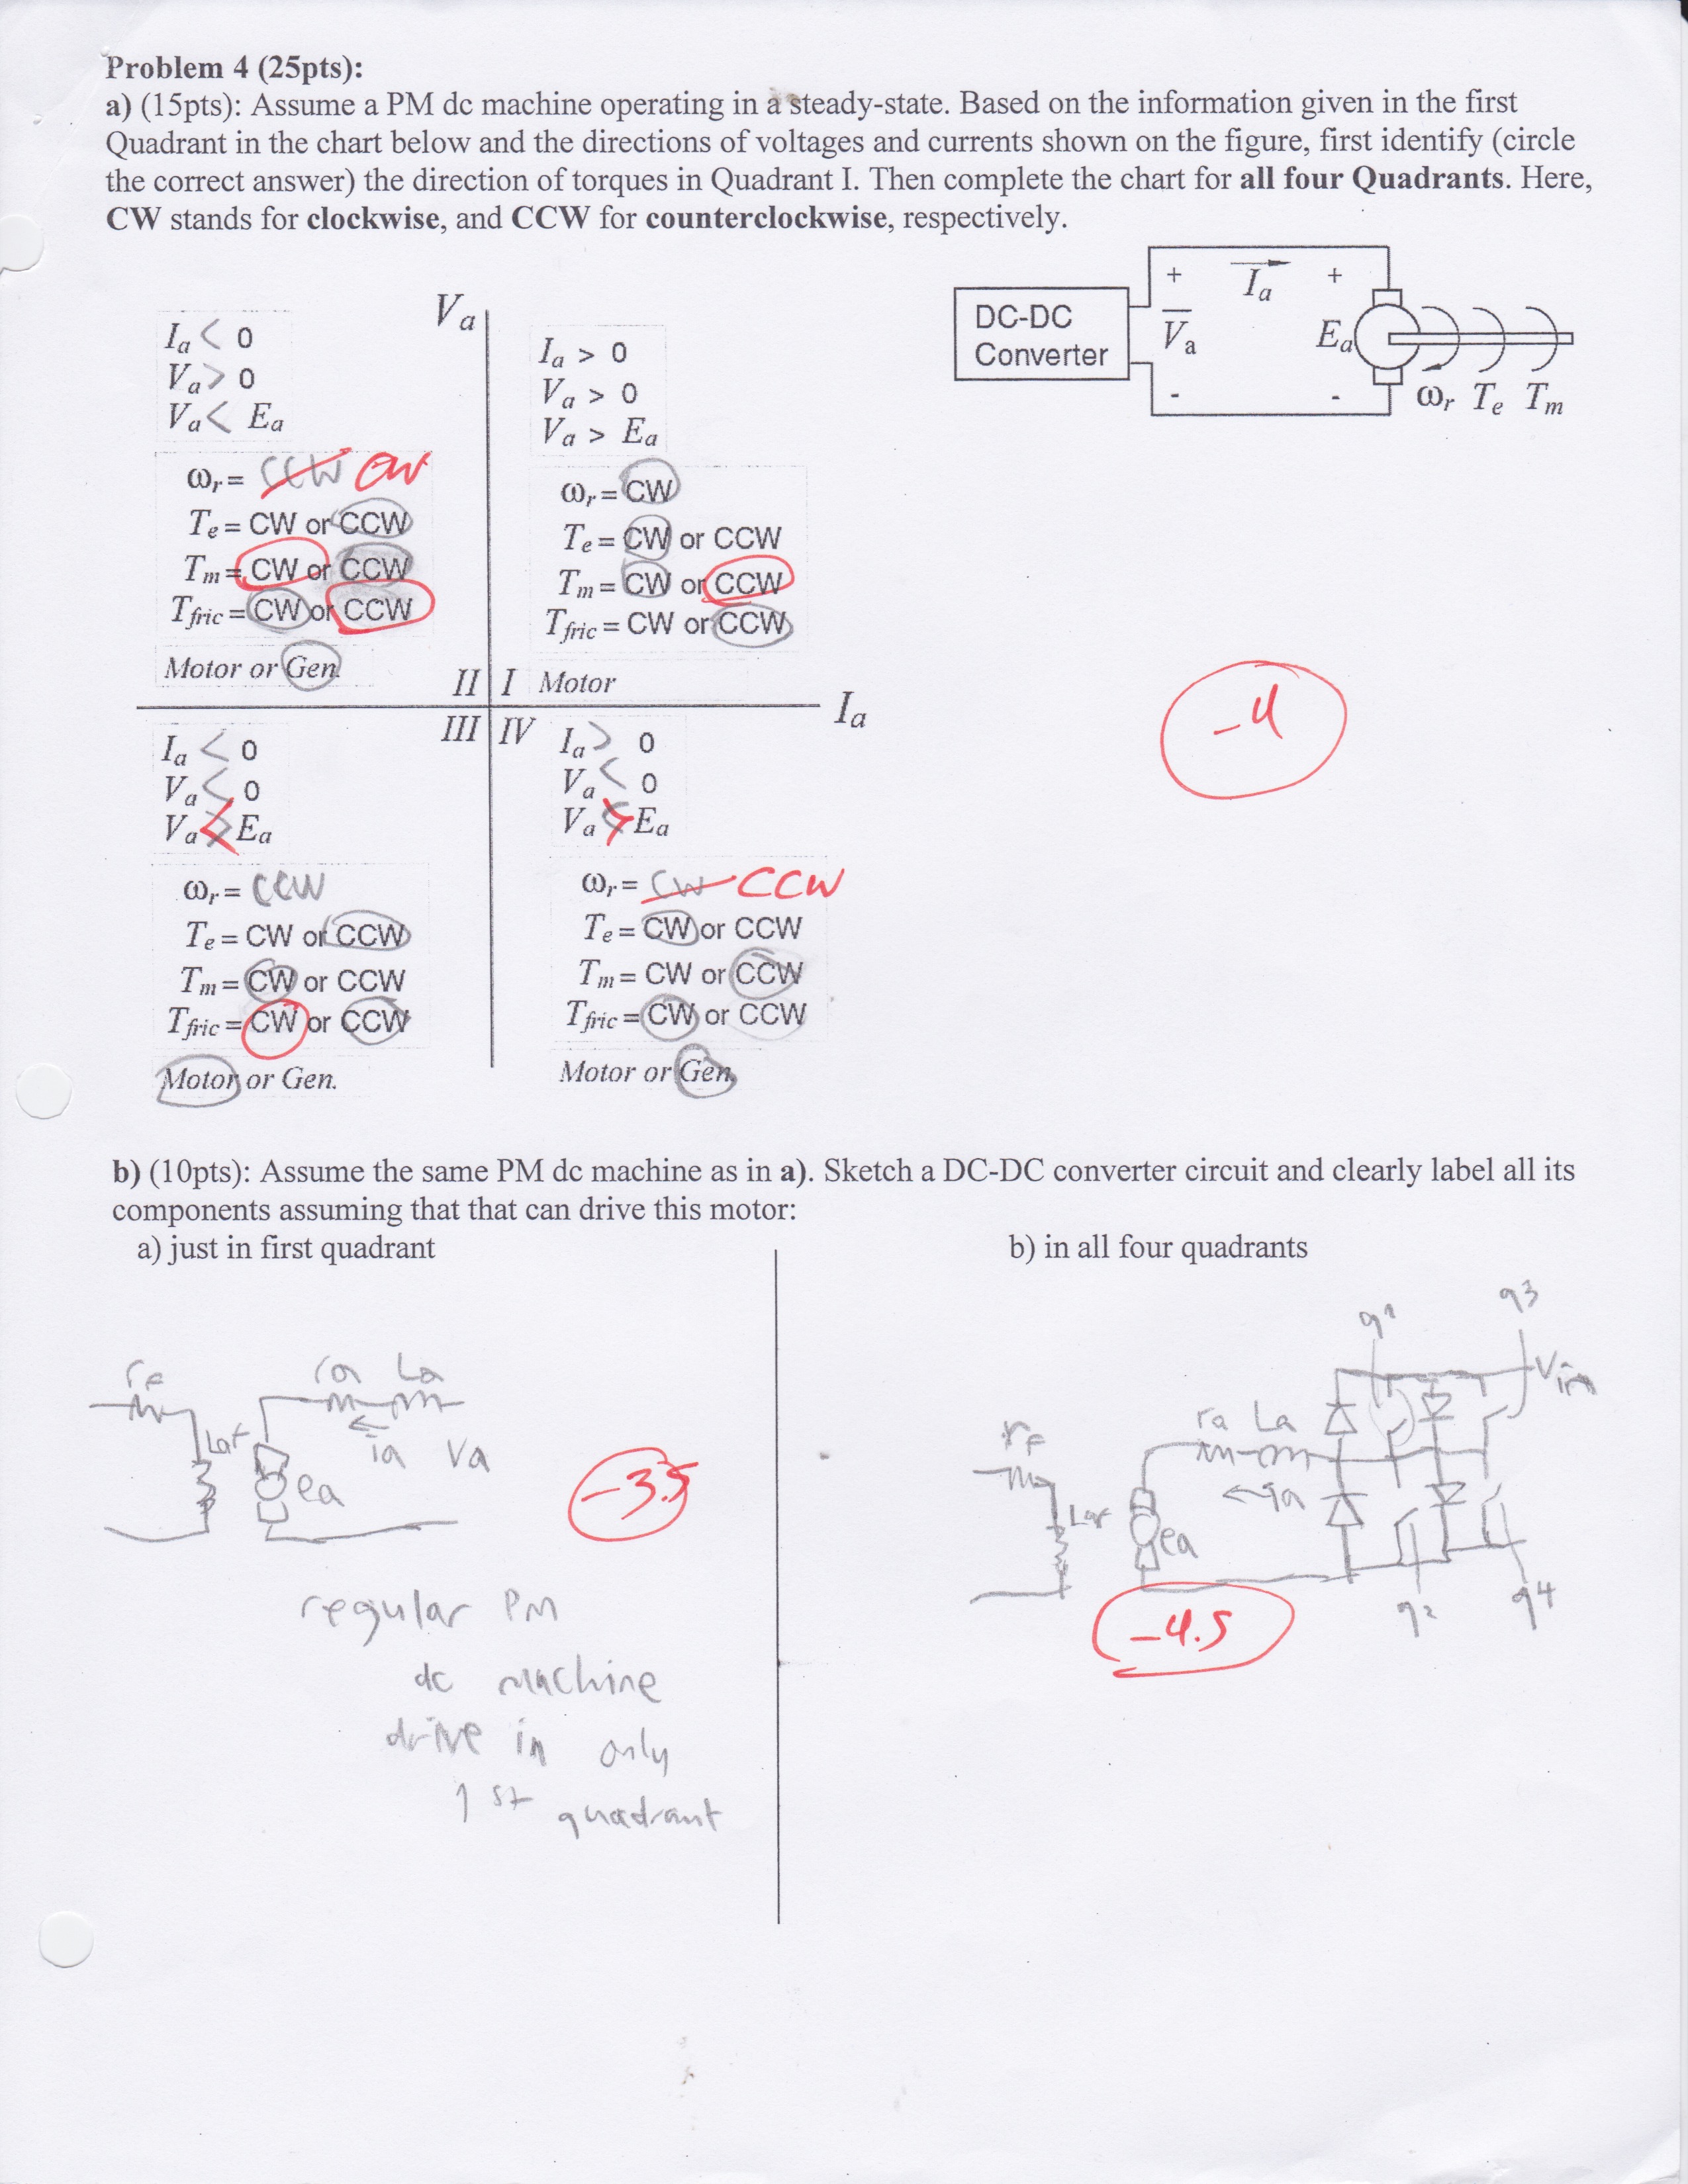 Problem 4 (25pts):
a) (15pts): Assume a PM dc machine operating in a steady-state. Based on the information given in the first
Quadrant in the chart below and the directions of voltages and currents shown on the figure, first identify (circle
the correct answer) the direction of torques in Quadrant I. Then complete the chart for all four Quadrants. Here,
CW stands for clockwise, and CCW for counterclockwise, respectively.
DC-DC
Converter
+
Va
-
Ia
+
Ea
-
ωr Te Tm
Va
Ia < 0
Va > 0
Va < Ea
ωr = CCW CW
Te = CW or CCW
Tm = CW or CCW
Tfric = CW or CCW
Motor or Gen.
II
Ia > 0
Va > 0
Va > Ea
ωr = CW
Te = CW or CCW
Tm = CW or CCW
Tfric = CW or CCW
I Motor
Ia
-4
III
Ia < 0
Va < 0
Va < Ea
ωr = CCW
Te = CW or CCW
Tm = CW or CCW
Tfric = CW or CCW
Motor or Gen.
IV
Ia > 0
Va < 0
Va > Ea
ωr = CW CCW
Te = CW or CCW
Tm = CW or CCW
Tfric = CW or CCW
Motor or Gen.
b) (10pts): Assume the same PM dc machine as in a). Sketch a DC-DC converter circuit and clearly label all its
components assuming that that can drive this motor:
a) just in first quadrant
rf
Laf
ra La
ia Va
ea
-3.5
regular PM
dc machine
drive in only
1st quadrant
b) in all four quadrants
q1
q3
Vin
rf
Laf
ra La
ia
ea
q2
q4
-4.5